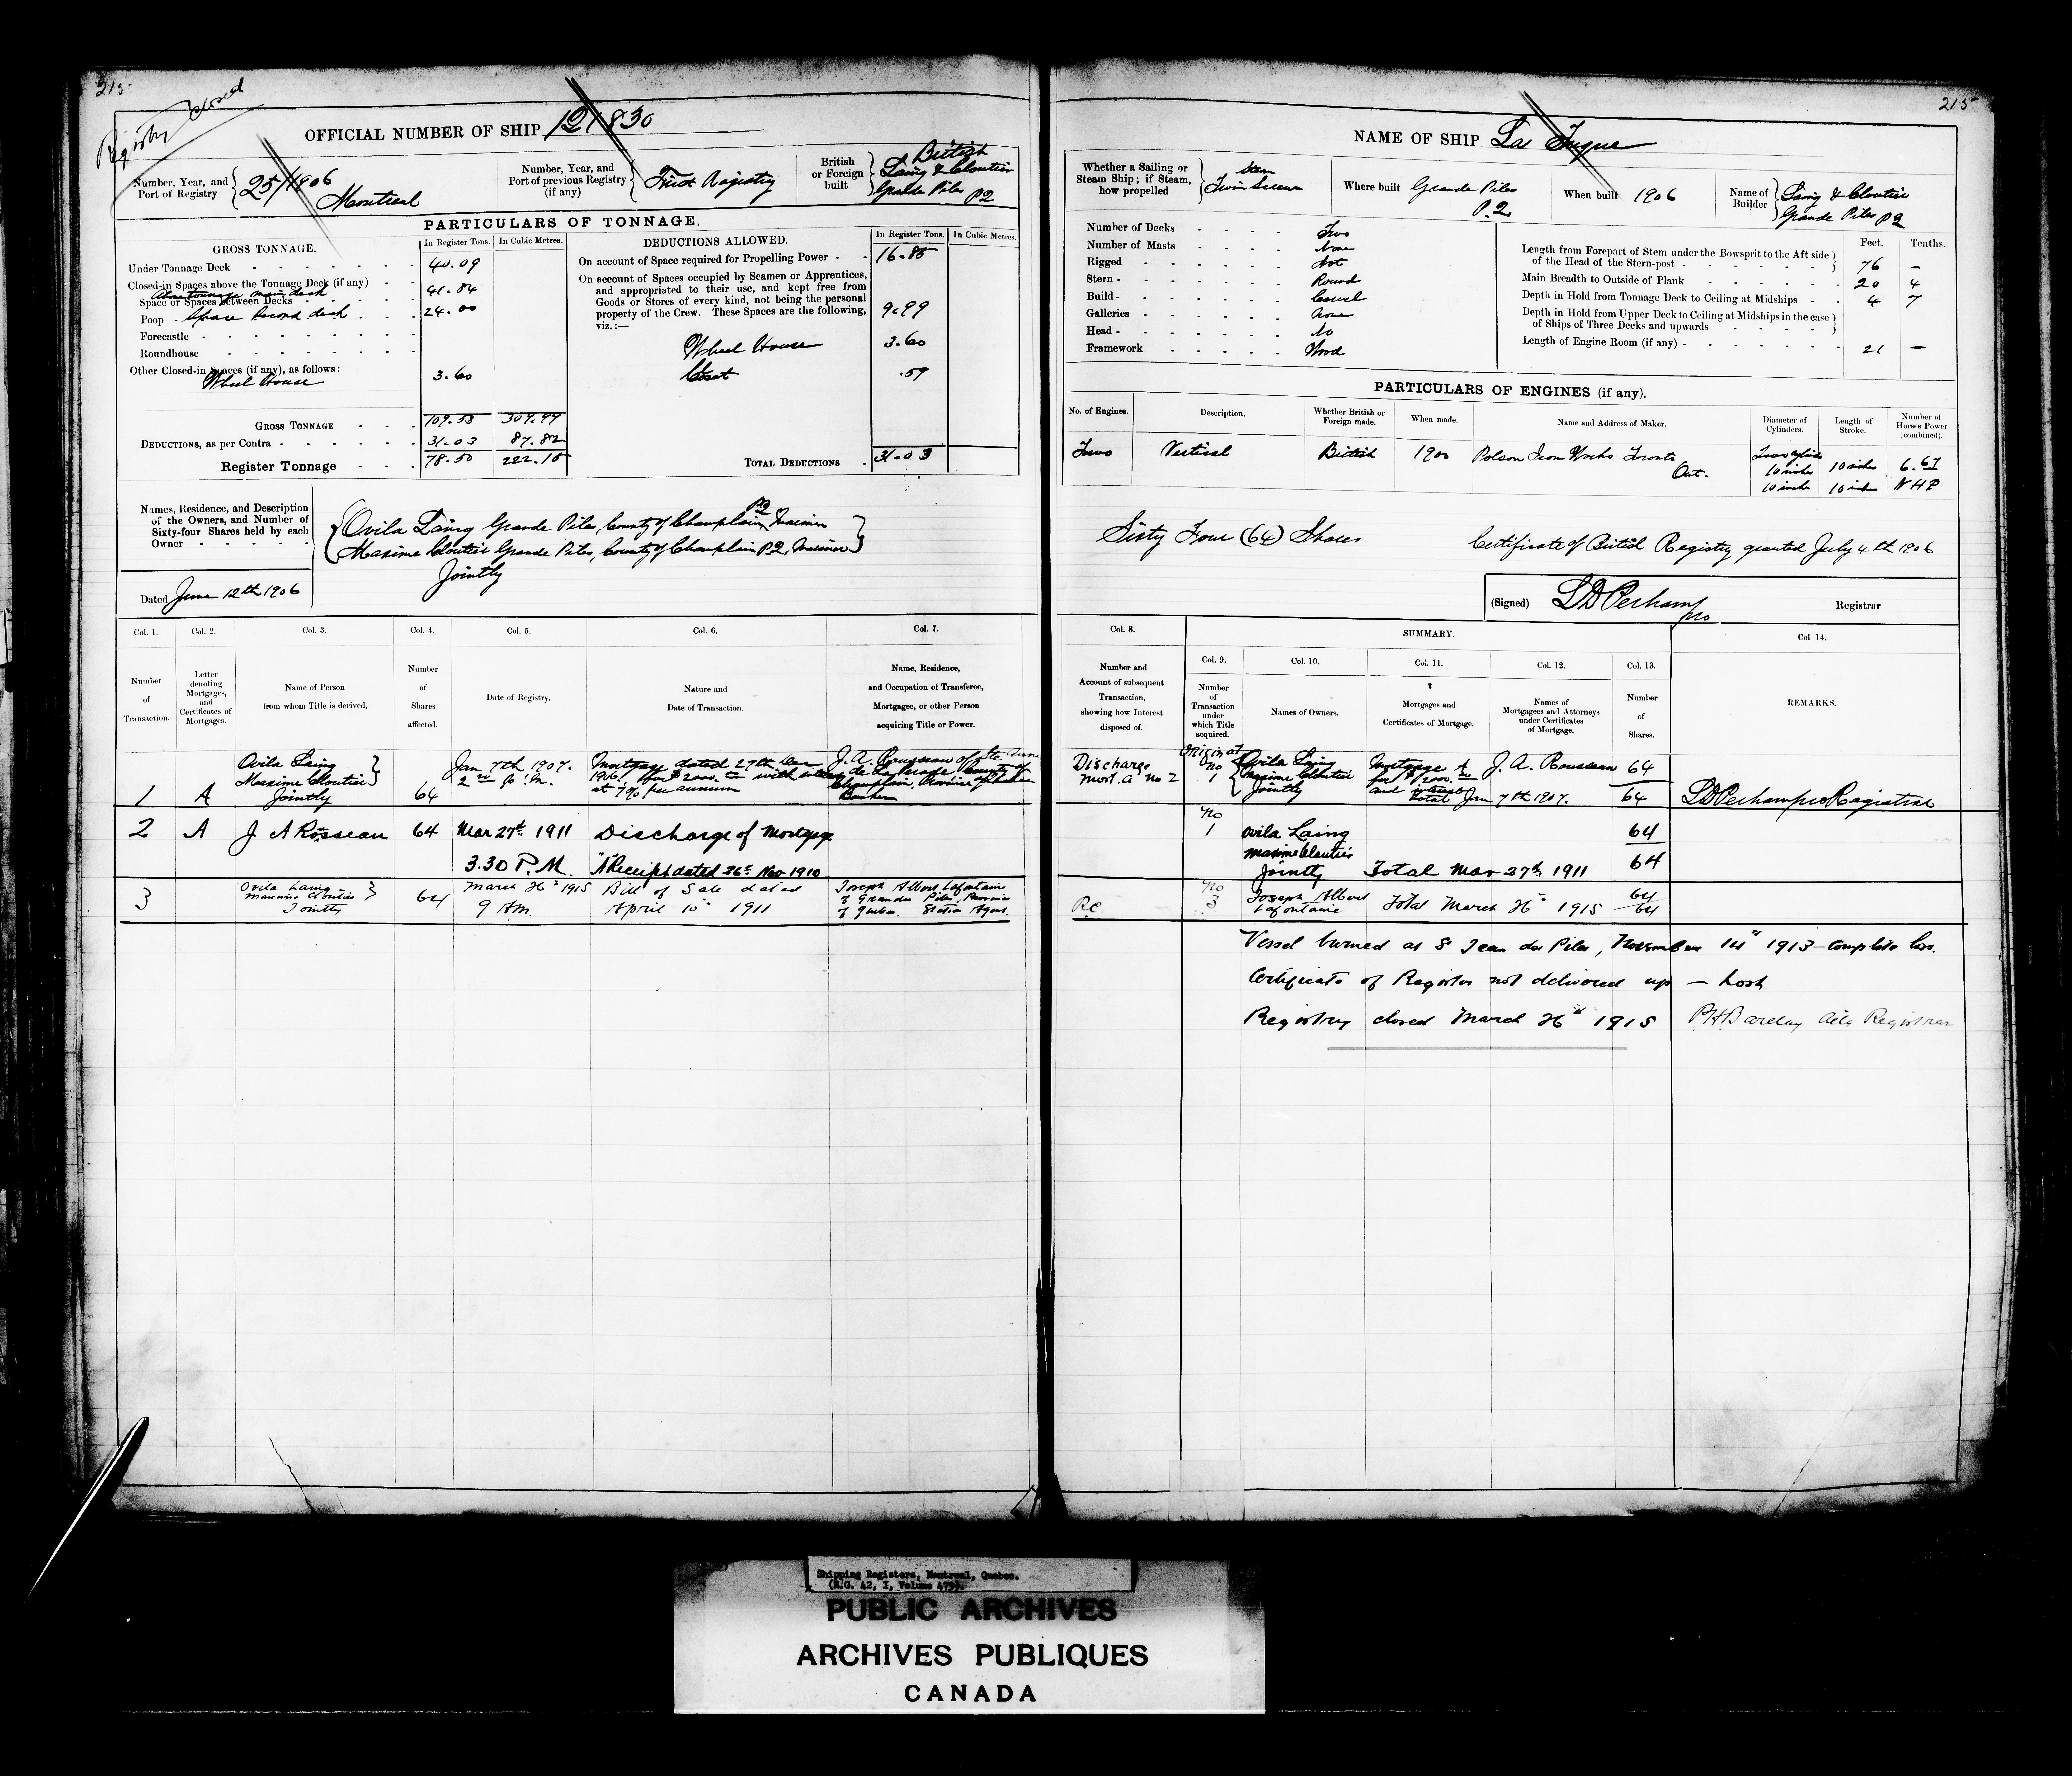 215
Registry Closed
OFFICIAL NUMBER OF SHIP 121830
Number, Year, and Port of Registry 25/1906 Montreal
Number, Year, and Port of previous Registry (if any) First Registry
British or Foreign built British Laing & Cloutier Grande Piles P2
PARTICULARS OF TONNAGE.
GROSS TONNAGE. In Register Tons. In Cubic Metres.
Under Tonnage Deck 40.09
Closed-in Spaces above the Tonnage Deck (if any)
Above tonnage main deck
Space or Spaces between Decks 41.84
Poop Space second deck 24.00
Forecastle
Roundhouse
Other Closed-in Spaces (if any), as follows:
Wheel House 3.60
GROSS TONNAGE 109.53 309.97
DEDUCTIONS, as per Contra 31.03 87.82
Register Tonnage 78.50 222.15
DEDUCTIONS ALLOWED. In Register Tons. In Cubic Metres.
On account of Space required for Propelling Power 16.85
On account of Spaces occupied by Seamen or Apprentices,
and appropriated to their use, and kept free from
Goods or Stores of every kind, not being the personal
property of the Crew. These Spaces are the following, 9.99
viz.:—
Wheel House 3.60
Closet .59
TOTAL DEDUCTIONS 31.03
Names, Residence, and Description
of the Owners, and Number of
Sixty-four Shares held by each
Owner
Ovila Laing Grande Piles, County of Champlain P2 Mariner
Maxime Cloutier Grande Piles, County of Champlain P2, Mariner
Jointly
Dated June 12th 1906
Col. 1. Col. 2. Col. 3. Col. 4. Col. 5. Col. 6. Col. 7.
Number of Transaction.
Letter denoting Mortgages, and Certificates of Mortgages.
Name of Person from whom Title is derived.
Number of Shares affected.
Date of Registry.
Nature and Date of Transaction.
Name, Residence, and Occupation of Transferee, Mortgagee, or other Person acquiring Title or Power.
1 A Ovila Laing Maxime Cloutier Jointly 64
Jan 7th 1907. 2 P.M.
Mortgage dated 27th Dec 1906, for $2000.00 with interest at 7% per annum
J. A. Rousseau of Ste Anne de la Perade County of Champlain, Province of Quebec Banker
2 A J A Rosseau 64 Mar 27th 1911 Discharge of Mortgage
3.30 P.M. "A" Receipt dated 26th Nov 1910
3 Ovila Laing Maxime Cloutier Jointly 64
March 26th 1915 9 AM.
Bill of Sale dated April 10th 1911
Joseph Albert Lafontaine of Grandes Piles, Province of Quebec. Station Agent.
215
NAME OF SHIP La Tuque
Whether a Sailing or Steam Ship; if Steam, how propelled Steam Twin Screw
Where built Grande Piles P.2.
When built 1906
Name of Builder Laing & Cloutier Grande Piles P2
Number of Decks Two
Number of Masts None
Rigged Not
Stern Round
Build Carvel
Galleries None
Head No
Framework Wood
Feet. Tenths.
Length from Forepart of Stem under the Bowsprit to the Aft side
of the Head of the Stern-post 76 –
Main Breadth to Outside of Plank 20 4
Depth in Hold from Tonnage Deck to Ceiling at Midships 4 7
Depth in Hold from Upper Deck to Ceiling at Midships in the case
of Ships of Three Decks and upwards
Length of Engine Room (if any) 21 –
PARTICULARS OF ENGINES (if any).
No. of Engines. Description. Whether British or Foreign made. When made. Name and Address of Maker. Diameter of Cylinders. Length of Stroke. Number of Horses Power (combined).
Two Vertical British 1900 Polson Iron Works Toronto Ont.
Two cylinders 10 inches 10 inches 6.67
10 inches 10 inches NHP
Sixty Four (64) Shares
Certificate of British Registry granted July 4th 1906
(Signed) LD Perham pro Registrar
Col. 8. SUMMARY. Col 14.
Col. 9. Col. 10. Col. 11. Col. 12. Col. 13.
Number and Account of subsequent Transaction, showing how Interest disposed of.
Number of Transaction under which Title acquired.
Names of Owners.
Mortgages and Certificates of Mortgage.
Names of Mortgagees and Attorneys under Certificates of Mortgage.
Number of Shares.
REMARKS.
Discharge Mort. A no 2
Original no 1 Ovila Laing Maxime Cloutier Jointly
Mortgage A for $2000.00 and interest
J. A. Rousseau 64
Total Jan 7th 1907. 64
LD Perham pro Registrar
No 1 Ovila Laing Maxime Cloutier Jointly 64
Total Mar 27th 1911 64
R.C.
No 3 Joseph Albert Lafontaine 64
Total March 26th 1915 64
Vessel burned at St Jean des Piles, November 14th 1913 complete loss.
Certificate of Register not delivered up – Lost
Registry closed March 26th 1915 P.H. Barclay Actg Registrar
Shipping Registers, Montreal, Quebec.
(R.G. 42, I, Volume 479).
PUBLIC ARCHIVES
ARCHIVES PUBLIQUES
CANADA